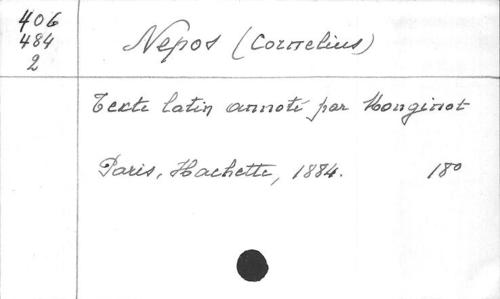 406
484
2
Nepos (Cornelius)
Texte latin annoté par Monginot
Paris, Hachette, 1884. 18°